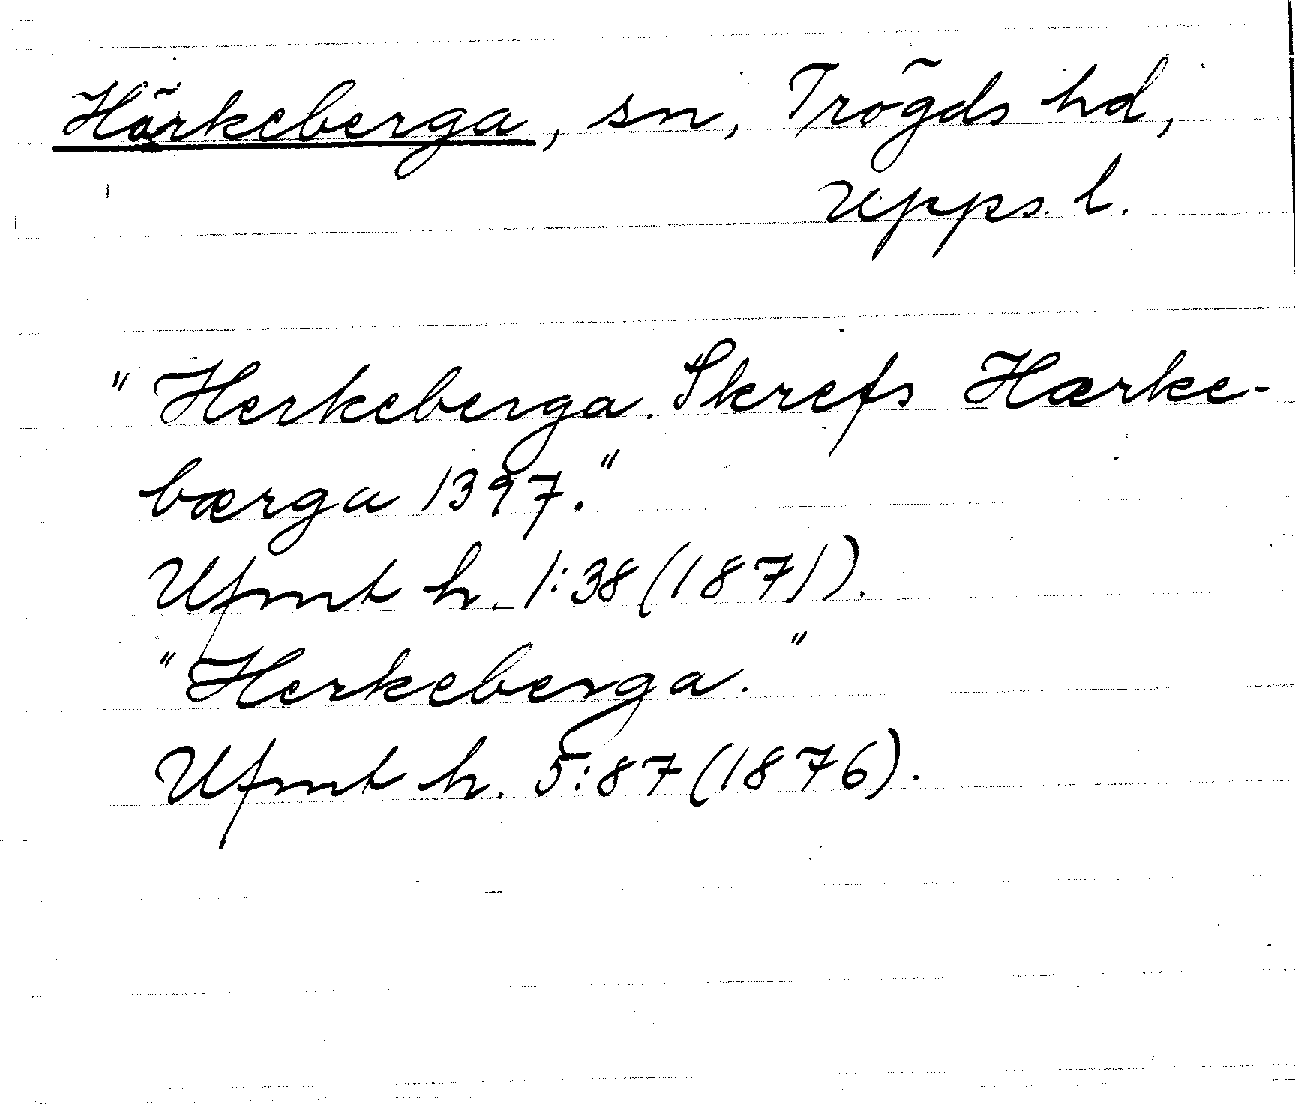 Härkeberga, sn, Trögds hd,
Upps. l.
"Herkeberga. Skrefs Hærke-
bærga 1397."
Ufmt h. 1:38 (1871).
"Herkeberga."
Ufmt h. 5:87 (1876).